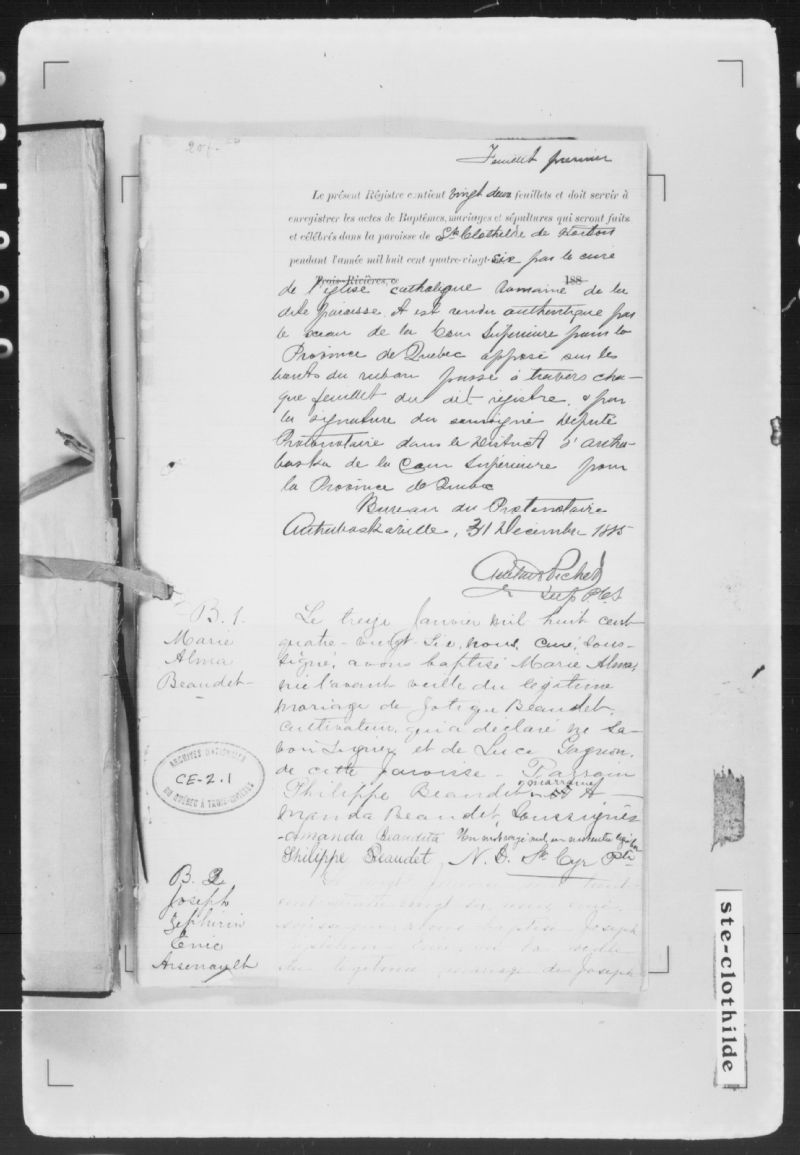 Feuillet premier
Le présent Régistre contient vingt deux feuillets et doit servir à
enregistrer les actes de Baptêmes, mariages et sépultures qui seront faits
et célébrés dans la paroisse de Ste Clothilde de Horton
pendant l'année mil huit cent quatre-vingt-six par le curé
Trois-Rivières, 188
de l'église catholique Romaine de la
dite paroisse. Et est rendu authentique par
le sceau de la Cour Supérieure pour la
Province de Québec apposé sur les
bouts du ruban passé à travers cha-
que feuillet du dit régistre, & par
la signature du soussigné Député
Protonotaire dans le District d'Artha-
baska de la Cour Supérieure pour
la Province de Québec
Bureau du Protonotaire
Arthabaskaville, 31 Décembre 1885
Pichet
Dep P.C.S
B. 1.
Marie
Alma
Beaudet
Le treize Janvier mil huit cent
quatre-vingt-six, nous, curé, sous-
signé, avons baptisé Marie Alma,
née l'avant veille du légitime
mariage de Beaudet,
cultivateur, qui a déclaré ne sa-
voir signer, et de Luce Gagnon,
de cette paroisse - Parrain
Philippe Beaudet marraine A-
manda Beaudet, soussignés
Amanda Beaudet Un mot rayé nul, un en marge
Philippe Beaudet N. D. St Cyr Ptre
B. 2
Joseph
Zéphirin
Enic
Arsenault
Le vingt Janvier mil huit
cent quatre-vingt-six, nous, curé,
soussigné, avons baptisé Joseph
né la veille
du légitime mariage de Joseph
ARCHIVES NATIONALES
CE-2.1
DU QUÉBEC À TROIS-RIVIÈRES
ste-clothilde